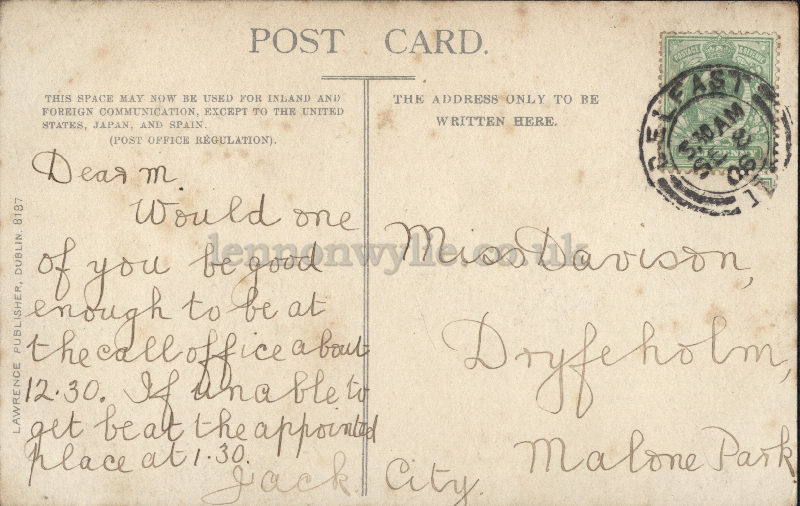 POST CARD.
THIS SPACE MAY NOW BE USED FOR INLAND AND
FOREIGN COMMUNICATION, EXCEPT TO THE UNITED
STATES, JAPAN, AND SPAIN.
(POST OFFICE REGULATION).
THE ADDRESS ONLY TO BE
WRITTEN HERE.
BELFAST
5.30 AM
SE 2
06
LAWRENCE PUBLISHER, DUBLIN. 8187
Dear M
Would one
of you be good
enough to be at
the call office about
12.30. If unable to
get be at the appointed
place at 1.30.
Jack.
Miss Davison,
Dryfeholm,
Malone Park
City.
lennonwylie.co.uk